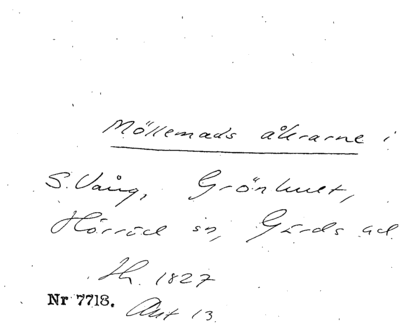 Möllemads åkrarne i
S. Vång, Grönhult,
Hörröd sn, Gärds hd
Lh. 1827
Nr 7718.
Akt 13